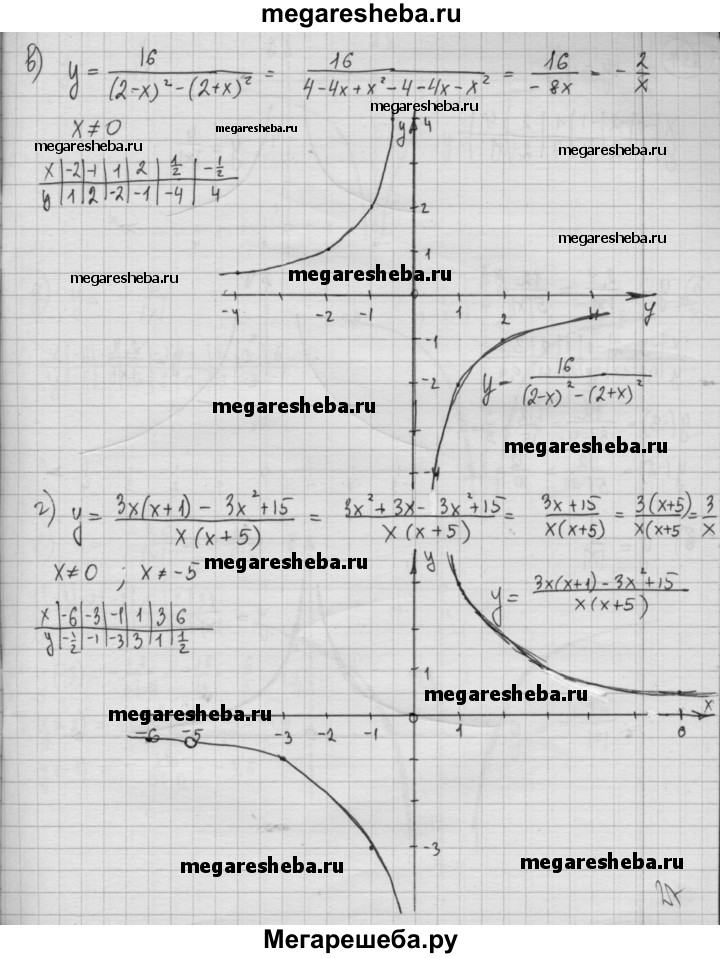 megaresheba.ru
в) y = 16 / ((2-x)² - (2+x)²) = 16 / (4-4x+x²-4-4x-x²) = 16 / (-8x) = - 2/x
megaresheba.ru
x ≠ 0 megaresheba.ru y 4
megaresheba.ru megaresheba.ru
x | -2 | -1 | 1 | 2 | 1/2 | -1/2
y | 1 | 2 | -2 | -1 | -4 | 4
2
megaresheba.ru
1
megaresheba.ru megaresheba.ru
-4 -2 -1 0 1 2 4 y
-1
-2 y = 16 / ((2-x)² - (2+x)²)
megaresheba.ru
megaresheba.ru
-4
г) y = (3x(x+1) - 3x²+15) / (x(x+5)) = (3x²+3x-3x²+15) / (x(x+5)) = (3x+15) / (x(x+5)) = 3(x+5) / (x(x+5 = 3/x
x ≠ 0 ; x ≠ -5 megaresheba.ru y
y = (3x(x+1) - 3x²+15) / (x(x+5))
x | -6 | -3 | -1 | 1 | 3 | 6
y | -1/2 | -1 | -3 | 3 | 1 | 1/2
1
megaresheba.ru
megaresheba.ru x
-6 -5 -3 -2 -1 0 1 6
-3
megaresheba.ru megaresheba.ru
Мегарешеба.ру